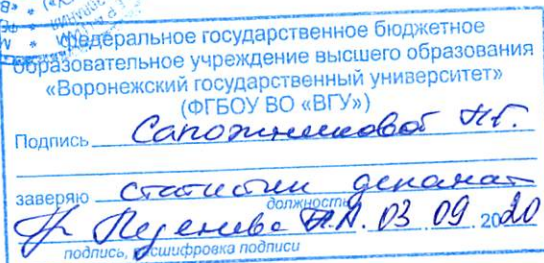 Федеральное государственное бюджетное
образовательное учреждение высшего образования
«Воронежский государственный университет»
(ФГБОУ ВО «ВГУ»)
Подпись Сапожниковой Н.Г.
заверяю статистик деканат
должность
03 09 2020
подпись, расшифровка подписи